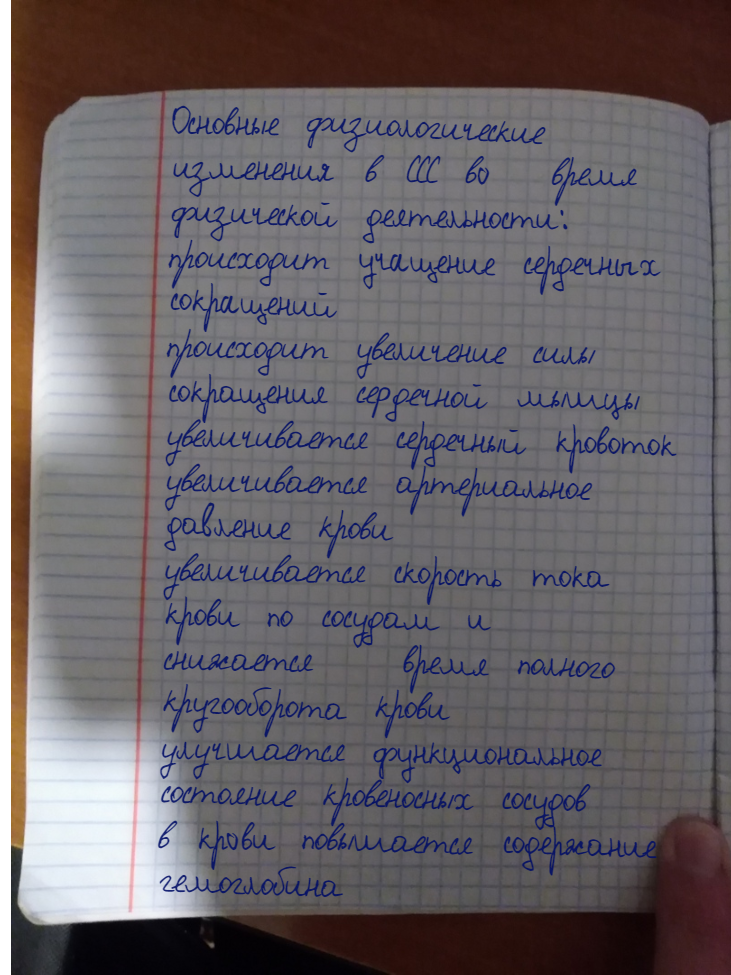 Основные физиологические
изменения в ССС во время
физической деятельности:
происходит учащение сердечных
сокращений
происходит увеличение силы
сокращения сердечной мышцы
увеличивается сердечный кровоток
увеличивается артериальное
давление крови
увеличивается скорость тока
крови по сосудам и
снижается время полного
кругооборота крови
улучшается функциональное
состояние кровеносных сосудов
в крови повышается содержание
гемоглобина